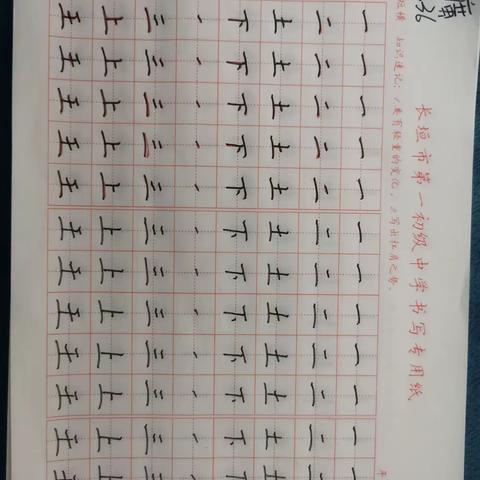 36
长垣市第一初级中学书写专用纸
短横 知识速记：1.要有轻重的变化。2.写出扛肩之势。
一一一一一一一一一一一一
二二二二二二二二二二二二
土土土土土土土土土土土土
下下下下下下下下下下下下
三三三三三三三三三三三三
上上上上上上上上上上上上
王王王王王王王王王王王王